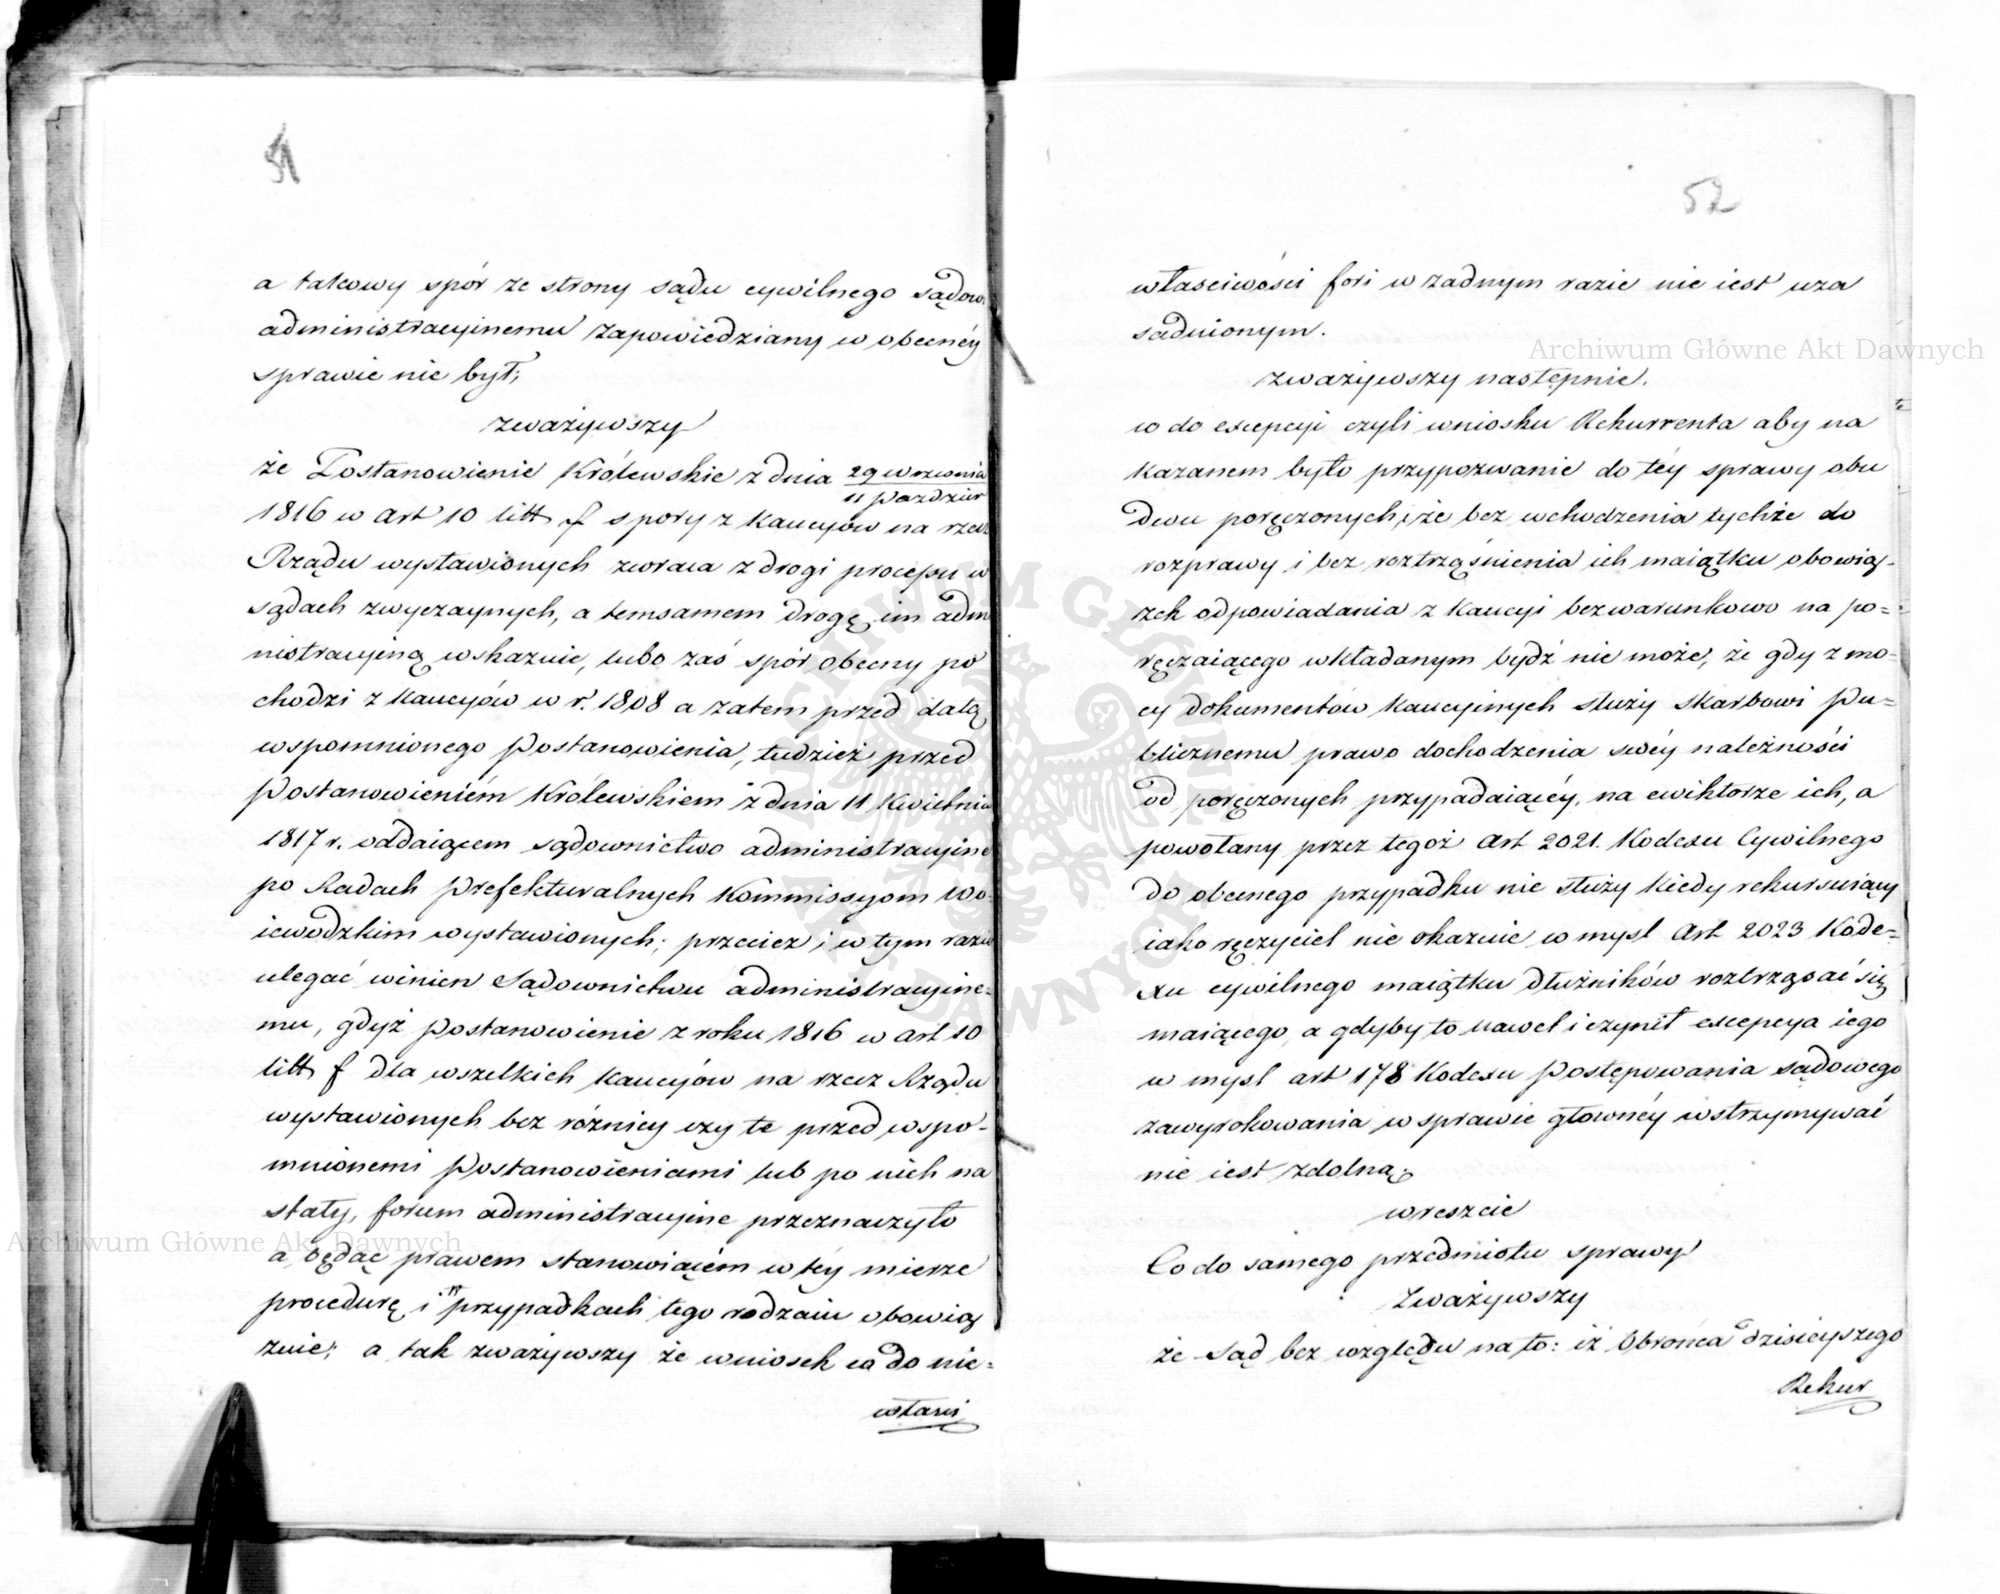 51
a takowy spór ze strony sądu cywilnego sądow
administracyinemu zapowiedziany w obecnéy
sprawie nie był;
zważywszy
że Postanowienie Królewskie z dnia 29 września
11 paździer
1816 w art 10 litt f spory z kaucyów na rzecz
Rządu wystawionych zwraca z drogi processu w
sądach zwyczaynych, a temsamem drogę im adm
nistracyiną wskazuie, lubo zaś spór obecny po
chodzi z kaucyów w r. 1808 a zatem przed datą
wspomnionego Postanowienia, tudzież przed
Postanowieniém Królewskiem z dnia 11 Kwietnia
1817 r. oddaiącem sądownictwo administracyine
po Radach Prefekturalnych Kommissyom Wo-
iewódzkim wystawionych; przecież i w tym razie
ulegać winien Sądownictwu administracyine-
mu, gdyż Postanowienie z roku 1816 w art 10
litt f dla wszelkich kaucyów na rzecz Rządu
wystawionych bez różnicy czy te przed wspo-
mnionemi Postanowieniami lub po nich na
stały, forum administracyine przeznaczyło
a będąc prawem stanowiącém w téy mierze
procedurę i w przypadkach tego rodzaiu obowią
zuie; a tak zważywszy że wniosek co do nie-
właści
52
właściwości fori w żadnym razie nie iest uza
sadnionym.
zważywszy następnie.
co do excepcyi czyli wniosku Rekurrenta aby na
kazanem było przypozwanie do téy sprawy obu
dwu poręczonych, że bez wchodzenia tychże do
rozprawy i bez roztrząśnienia ich maiątku obowią-
zek odpowiadania z kaucyi bezwarunkowo na po-
ręczaiącego wkładanym bydź nie może, że gdy z mo-
cy dokumentów kaucyinych służy skarbowi Pu-
blicznemu prawo dochodzenia swéy należności
od poręczonych przypadaiącéy, na ewiktorze ich, a
powołany przez tegoż art 2021. Kodexu Cywilnego
do obecnego przypadku nie służy kiedy rekursuiący
iako ręczyciel nie okazuie w mysl Art 2023 Kode-
xu cywilnego maiątku dłużników roztrząsać się
maiącego, a gdyby to nawet i czynił excepcya iego
w mysl art 178 Kodexu Postępowania sądowego
zawyrokowania w sprawie głownéy wstrzymywać
nie iest zdolną;
wreszcie
Co do samego przedmiotu sprawy
Zważywszy
że Sąd bez względu na to: iż Obrońca dzisieyszego
Rekur
Archiwum Główne Akt Dawnych
Archiwum Główne Akt Dawnych
ARCHIWUM GŁÓWNE AKT DAWNYCH